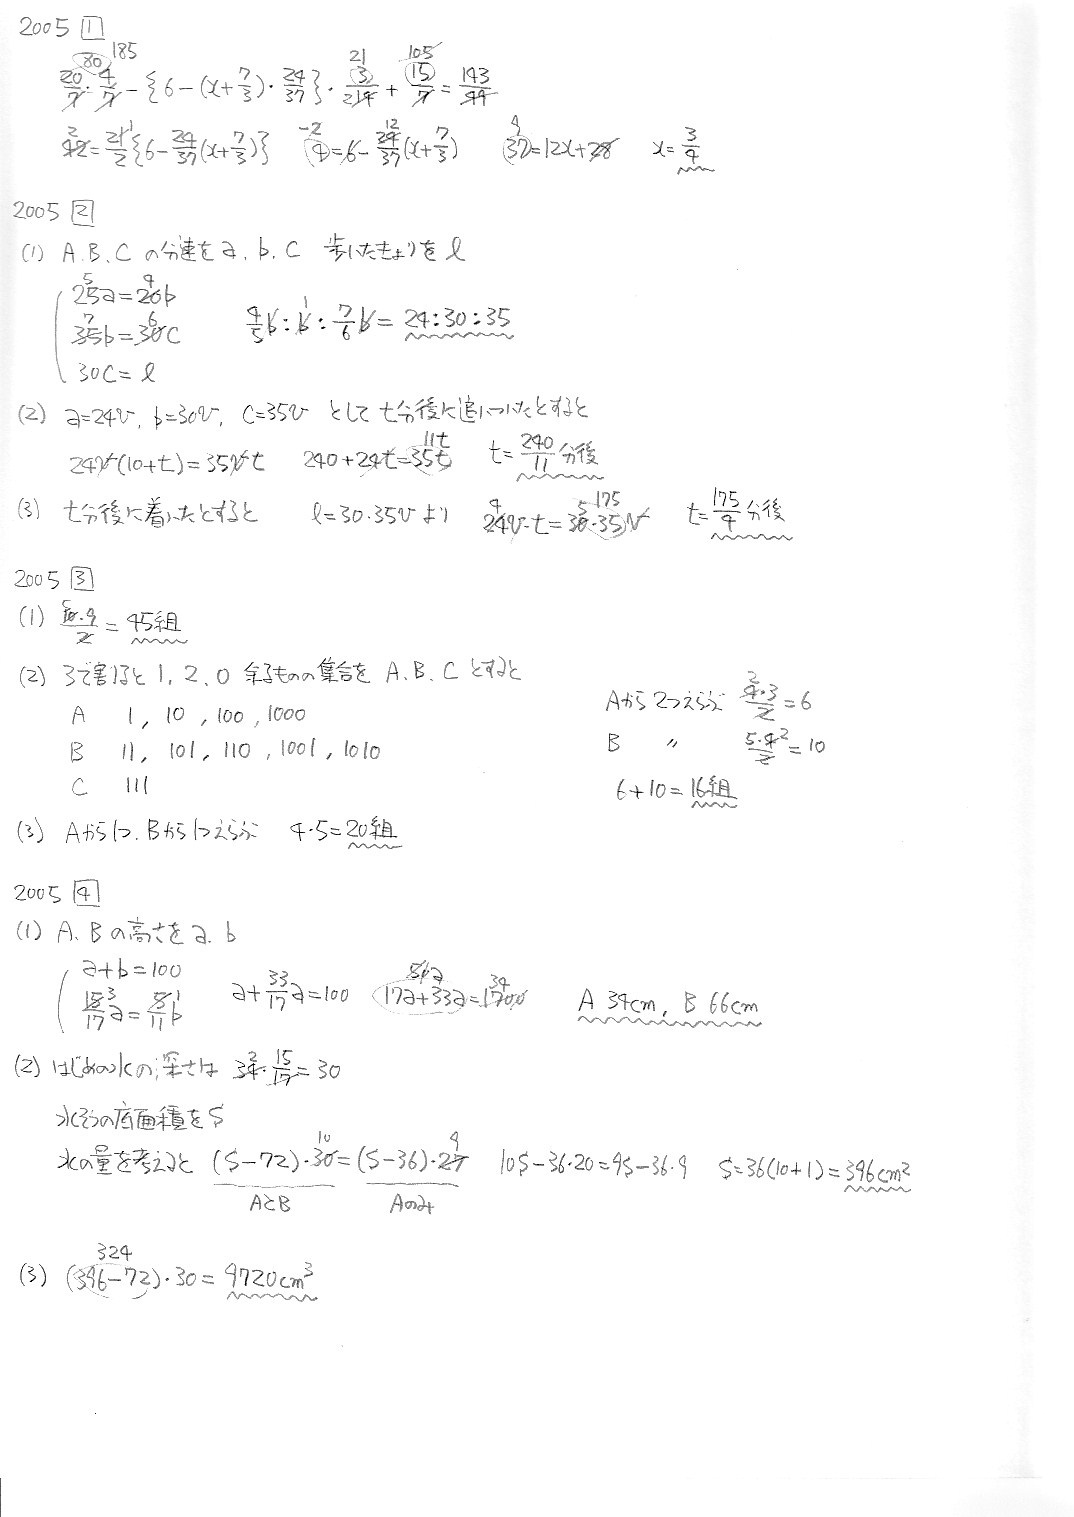 2005 1
80 185 21 105
20/7・4/7 − {6 − (x + 7/3)・24/37}・3/214 + 15/7 = 143/49
42 = 21/2{6 − 24/37(x + 7/3)} 4 = 6 − 24/37(x + 7/3) 37 = 12x + 28 x = 3/4
2005 2
(1) A.B.C の分速をa.b.c 歩いたきょりをl
25a = 20b
35b = 30c 4/5b : b : 7/6b = 24:30:35
30c = l
(2) a=24v, b=30v, c=35v として t分後に追いついたとすると
24v(10+t) = 35vt 240+24t = 35t 11t t = 240/11 分後
(3) t分後に着いたとすると l = 30・35v より 24v・t = 30・35v 175 t = 175/4 分後
2005 3
(1) 10・9/2 = 45組
(2) 3で割ると 1, 2, 0 余るものの集合を A.B.C とすると
A 1, 10, 100, 1000
B 11, 101, 110, 1001, 1010
C 111
Aから2つえらぶ 4・3/2 = 6
B 〃 5・4/2 = 10
6+10 = 16組
(3) Aから1つ. Bから1つえらぶ 4・5 = 20組
2005 4
(1) A.Bの高さをa.b
a+b = 100
15/17a = 5/11b a + 33/17a = 100 17a+33a = 1700 A 34cm, B 66cm
(2) はじめの水の深さは 34・15/17 = 30
水そうの底面積をS
水の量を考えると (S−72)・30 = (S−36)・27 10S−36・20 = 9S−36・9 S = 36(10+1) = 396cm²
AとB Aのみ
324
(3) (396−72)・30 = 9720cm³